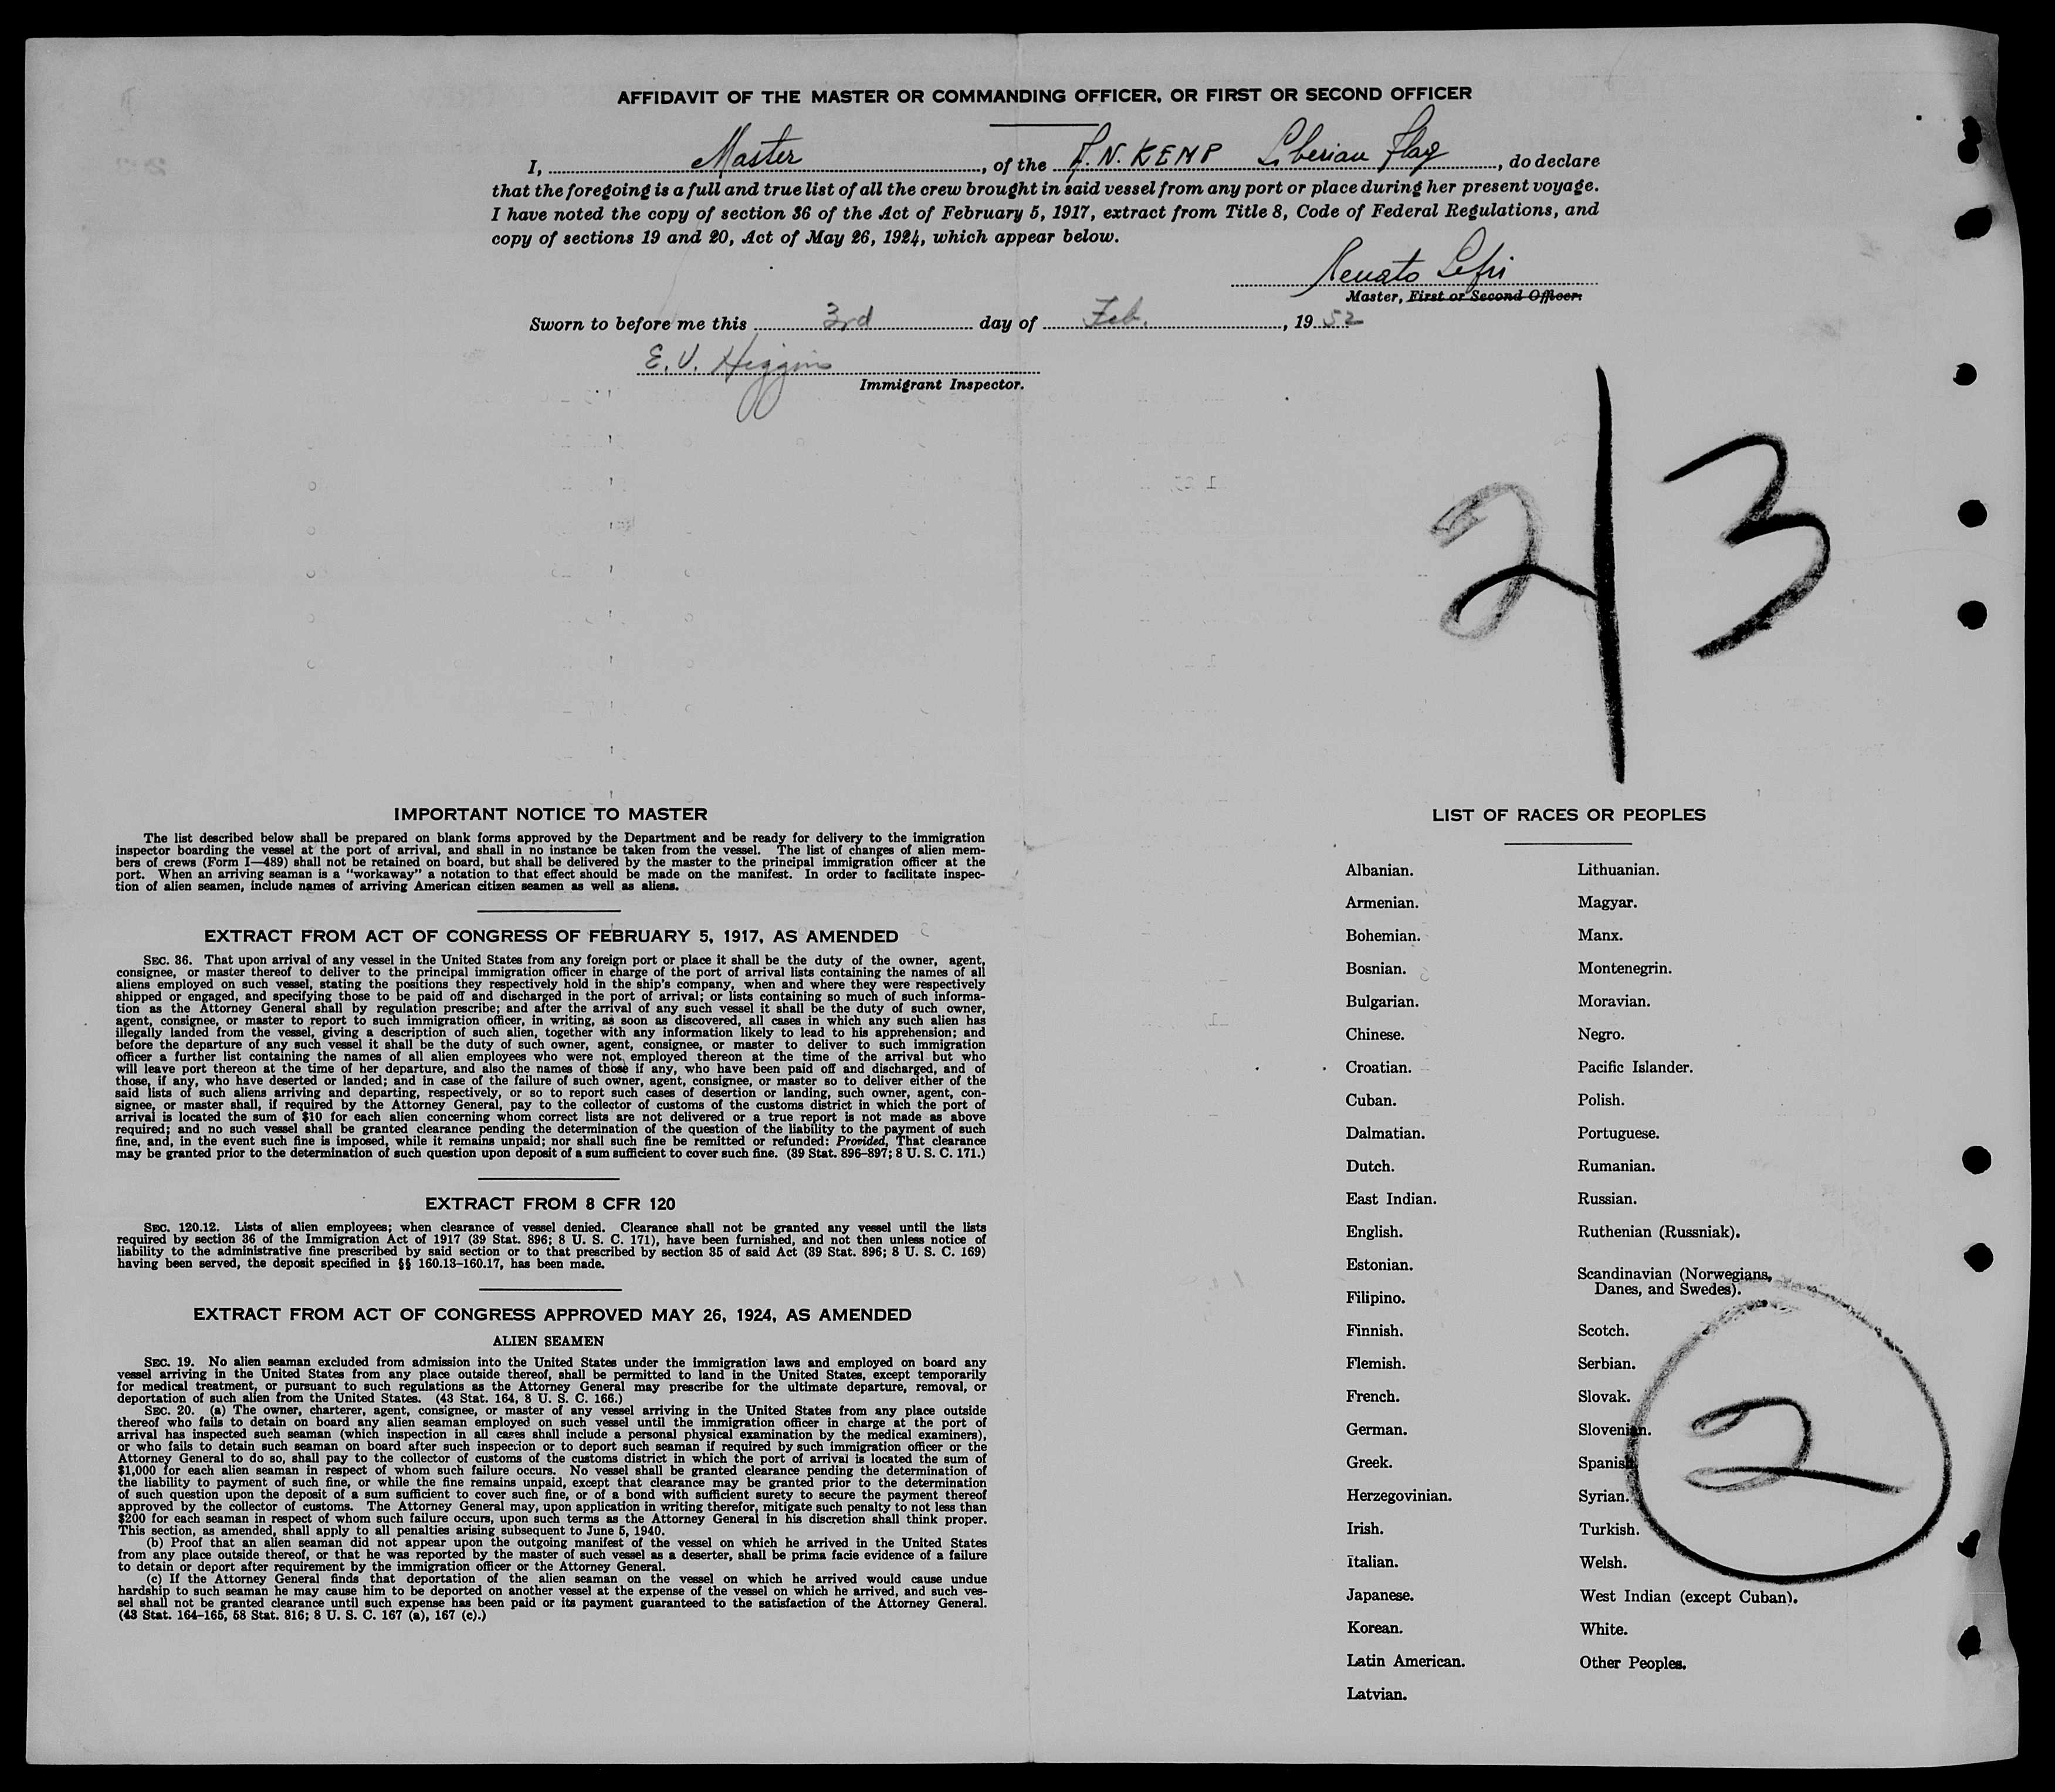 AFFIDAVIT OF THE MASTER OR COMMANDING OFFICER, OR FIRST OR SECOND OFFICER
I, Master, of the A.N. KEMP Liberian Flag, do declare
that the foregoing is a full and true list of all the crew brought in said vessel from any port or place during her present voyage.
I have noted the copy of section 36 of the Act of February 5, 1917, extract from Title 8, Code of Federal Regulations, and
copy of sections 19 and 20, Act of May 26, 1924, which appear below.
Renato
Master, First or Second Officer.
Sworn to before me this 3rd day of Feb., 1952
E. V. Higgins
Immigrant Inspector.
2/3
IMPORTANT NOTICE TO MASTER
The list described below shall be prepared on blank forms approved by the Department and be ready for delivery to the immigration
inspector boarding the vessel at the port of arrival, and shall in no instance be taken from the vessel. The list of changes of alien mem-
bers of crews (Form I—489) shall not be retained on board, but shall be delivered by the master to the principal immigration officer at the
port. When an arriving seaman is a "workaway" a notation to that effect should be made on the manifest. In order to facilitate inspec-
tion of alien seamen, include names of arriving American citizen seamen as well as aliens.
EXTRACT FROM ACT OF CONGRESS OF FEBRUARY 5, 1917, AS AMENDED
SEC. 36. That upon arrival of any vessel in the United States from any foreign port or place it shall be the duty of the owner, agent,
consignee, or master thereof to deliver to the principal immigration officer in charge of the port of arrival lists containing the names of all
aliens employed on such vessel, stating the positions they respectively hold in the ship's company, when and where they were respectively
shipped or engaged, and specifying those to be paid off and discharged in the port of arrival; or lists containing so much of such informa-
tion as the Attorney General shall by regulation prescribe; and after the arrival of any such vessel it shall be the duty of such owner,
agent, consignee, or master to report to such immigration officer, in writing, as soon as discovered, all cases in which any such alien has
illegally landed from the vessel, giving a description of such alien, together with any information likely to lead to his apprehension; and
before the departure of any such vessel it shall be the duty of such owner, agent, consignee, or master to deliver to such immigration
officer a further list containing the names of all alien employees who were not employed thereon at the time of the arrival but who
will leave port thereon at the time of her departure, and also the names of those if any, who have been paid off and discharged, and of
those, if any, who have deserted or landed; and in case of the failure of such owner, agent, consignee, or master so to deliver either of the
said lists of such aliens arriving and departing, respectively, or so to report such cases of desertion or landing, such owner, agent, con-
signee, or master shall, if required by the Attorney General, pay to the collector of customs of the customs district in which the port of
arrival is located the sum of $10 for each alien concerning whom correct lists are not delivered or a true report is not made as above
required; and no such vessel shall be granted clearance pending the determination of the question of the liability to the payment of such
fine, and, in the event such fine is imposed, while it remains unpaid; nor shall such fine be remitted or refunded: Provided, That clearance
may be granted prior to the determination of such question upon deposit of a sum sufficient to cover such fine. (39 Stat. 896–897; 8 U. S. C. 171.)
EXTRACT FROM 8 CFR 120
SEC. 120.12. Lists of alien employees; when clearance of vessel denied. Clearance shall not be granted any vessel until the lists
required by section 36 of the Immigration Act of 1917 (39 Stat. 896; 8 U. S. C. 171), have been furnished, and not then unless notice of
liability to the administrative fine prescribed by said section or to that prescribed by section 35 of said Act (39 Stat. 896; 8 U. S. C. 169)
having been served, the deposit specified in §§ 160.13–160.17, has been made.
EXTRACT FROM ACT OF CONGRESS APPROVED MAY 26, 1924, AS AMENDED
ALIEN SEAMEN
SEC. 19. No alien seaman excluded from admission into the United States under the immigration laws and employed on board any
vessel arriving in the United States from any place outside thereof, shall be permitted to land in the United States, except temporarily
for medical treatment, or pursuant to such regulations as the Attorney General may prescribe for the ultimate departure, removal, or
deportation of such alien from the United States. (43 Stat. 164, 8 U. S. C. 166.)
SEC. 20. (a) The owner, charterer, agent, consignee, or master of any vessel arriving in the United States from any place outside
thereof who fails to detain on board any alien seaman employed on such vessel until the immigration officer in charge at the port of
arrival has inspected such seaman (which inspection in all cases shall include a personal physical examination by the medical examiners),
or who fails to detain such seaman on board after such inspection or to deport such seaman if required by such immigration officer or the
Attorney General to do so, shall pay to the collector of customs of the customs district in which the port of arrival is located the sum of
$1,000 for each alien seaman in respect of whom such failure occurs. No vessel shall be granted clearance pending the determination of
the liability to payment of such fine, or while the fine remains unpaid, except that clearance may be granted prior to the determination
of such question upon the deposit of a sum sufficient to cover such fine, or of a bond with sufficient surety to secure the payment thereof
approved by the collector of customs. The Attorney General may, upon application in writing therefor, mitigate such penalty to not less than
$200 for each seaman in respect of whom such failure occurs, upon such terms as the Attorney General in his discretion shall think proper.
This section, as amended, shall apply to all penalties arising subsequent to June 5, 1940.
(b) Proof that an alien seaman did not appear upon the outgoing manifest of the vessel on which he arrived in the United States
from any place outside thereof, or that he was reported by the master of such vessel as a deserter, shall be prima facie evidence of a failure
to detain or deport after requirement by the immigration officer or the Attorney General.
(c) If the Attorney General finds that deportation of the alien seaman on the vessel on which he arrived would cause undue
hardship to such seaman he may cause him to be deported on another vessel at the expense of the vessel on which he arrived, and such ves-
sel shall not be granted clearance until such expense has been paid or its payment guaranteed to the satisfaction of the Attorney General.
(43 Stat. 164–165, 58 Stat. 816; 8 U. S. C. 167 (a), 167 (c).)
LIST OF RACES OR PEOPLES
Albanian.
Armenian.
Bohemian.
Bosnian.
Bulgarian.
Chinese.
Croatian.
Cuban.
Dalmatian.
Dutch.
East Indian.
English.
Estonian.
Filipino.
Finnish.
Flemish.
French.
German.
Greek.
Herzegovinian.
Irish.
Italian.
Japanese.
Korean.
Latin American.
Latvian.
Lithuanian.
Magyar.
Manx.
Montenegrin.
Moravian.
Negro.
Pacific Islander.
Polish.
Portuguese.
Rumanian.
Russian.
Ruthenian (Russniak).
Scandinavian (Norwegians,
Danes, and Swedes).
Scotch.
Serbian.
Slovak.
Slovenian.
Spanish.
Syrian.
Turkish.
Welsh.
West Indian (except Cuban).
White.
Other Peoples.
2